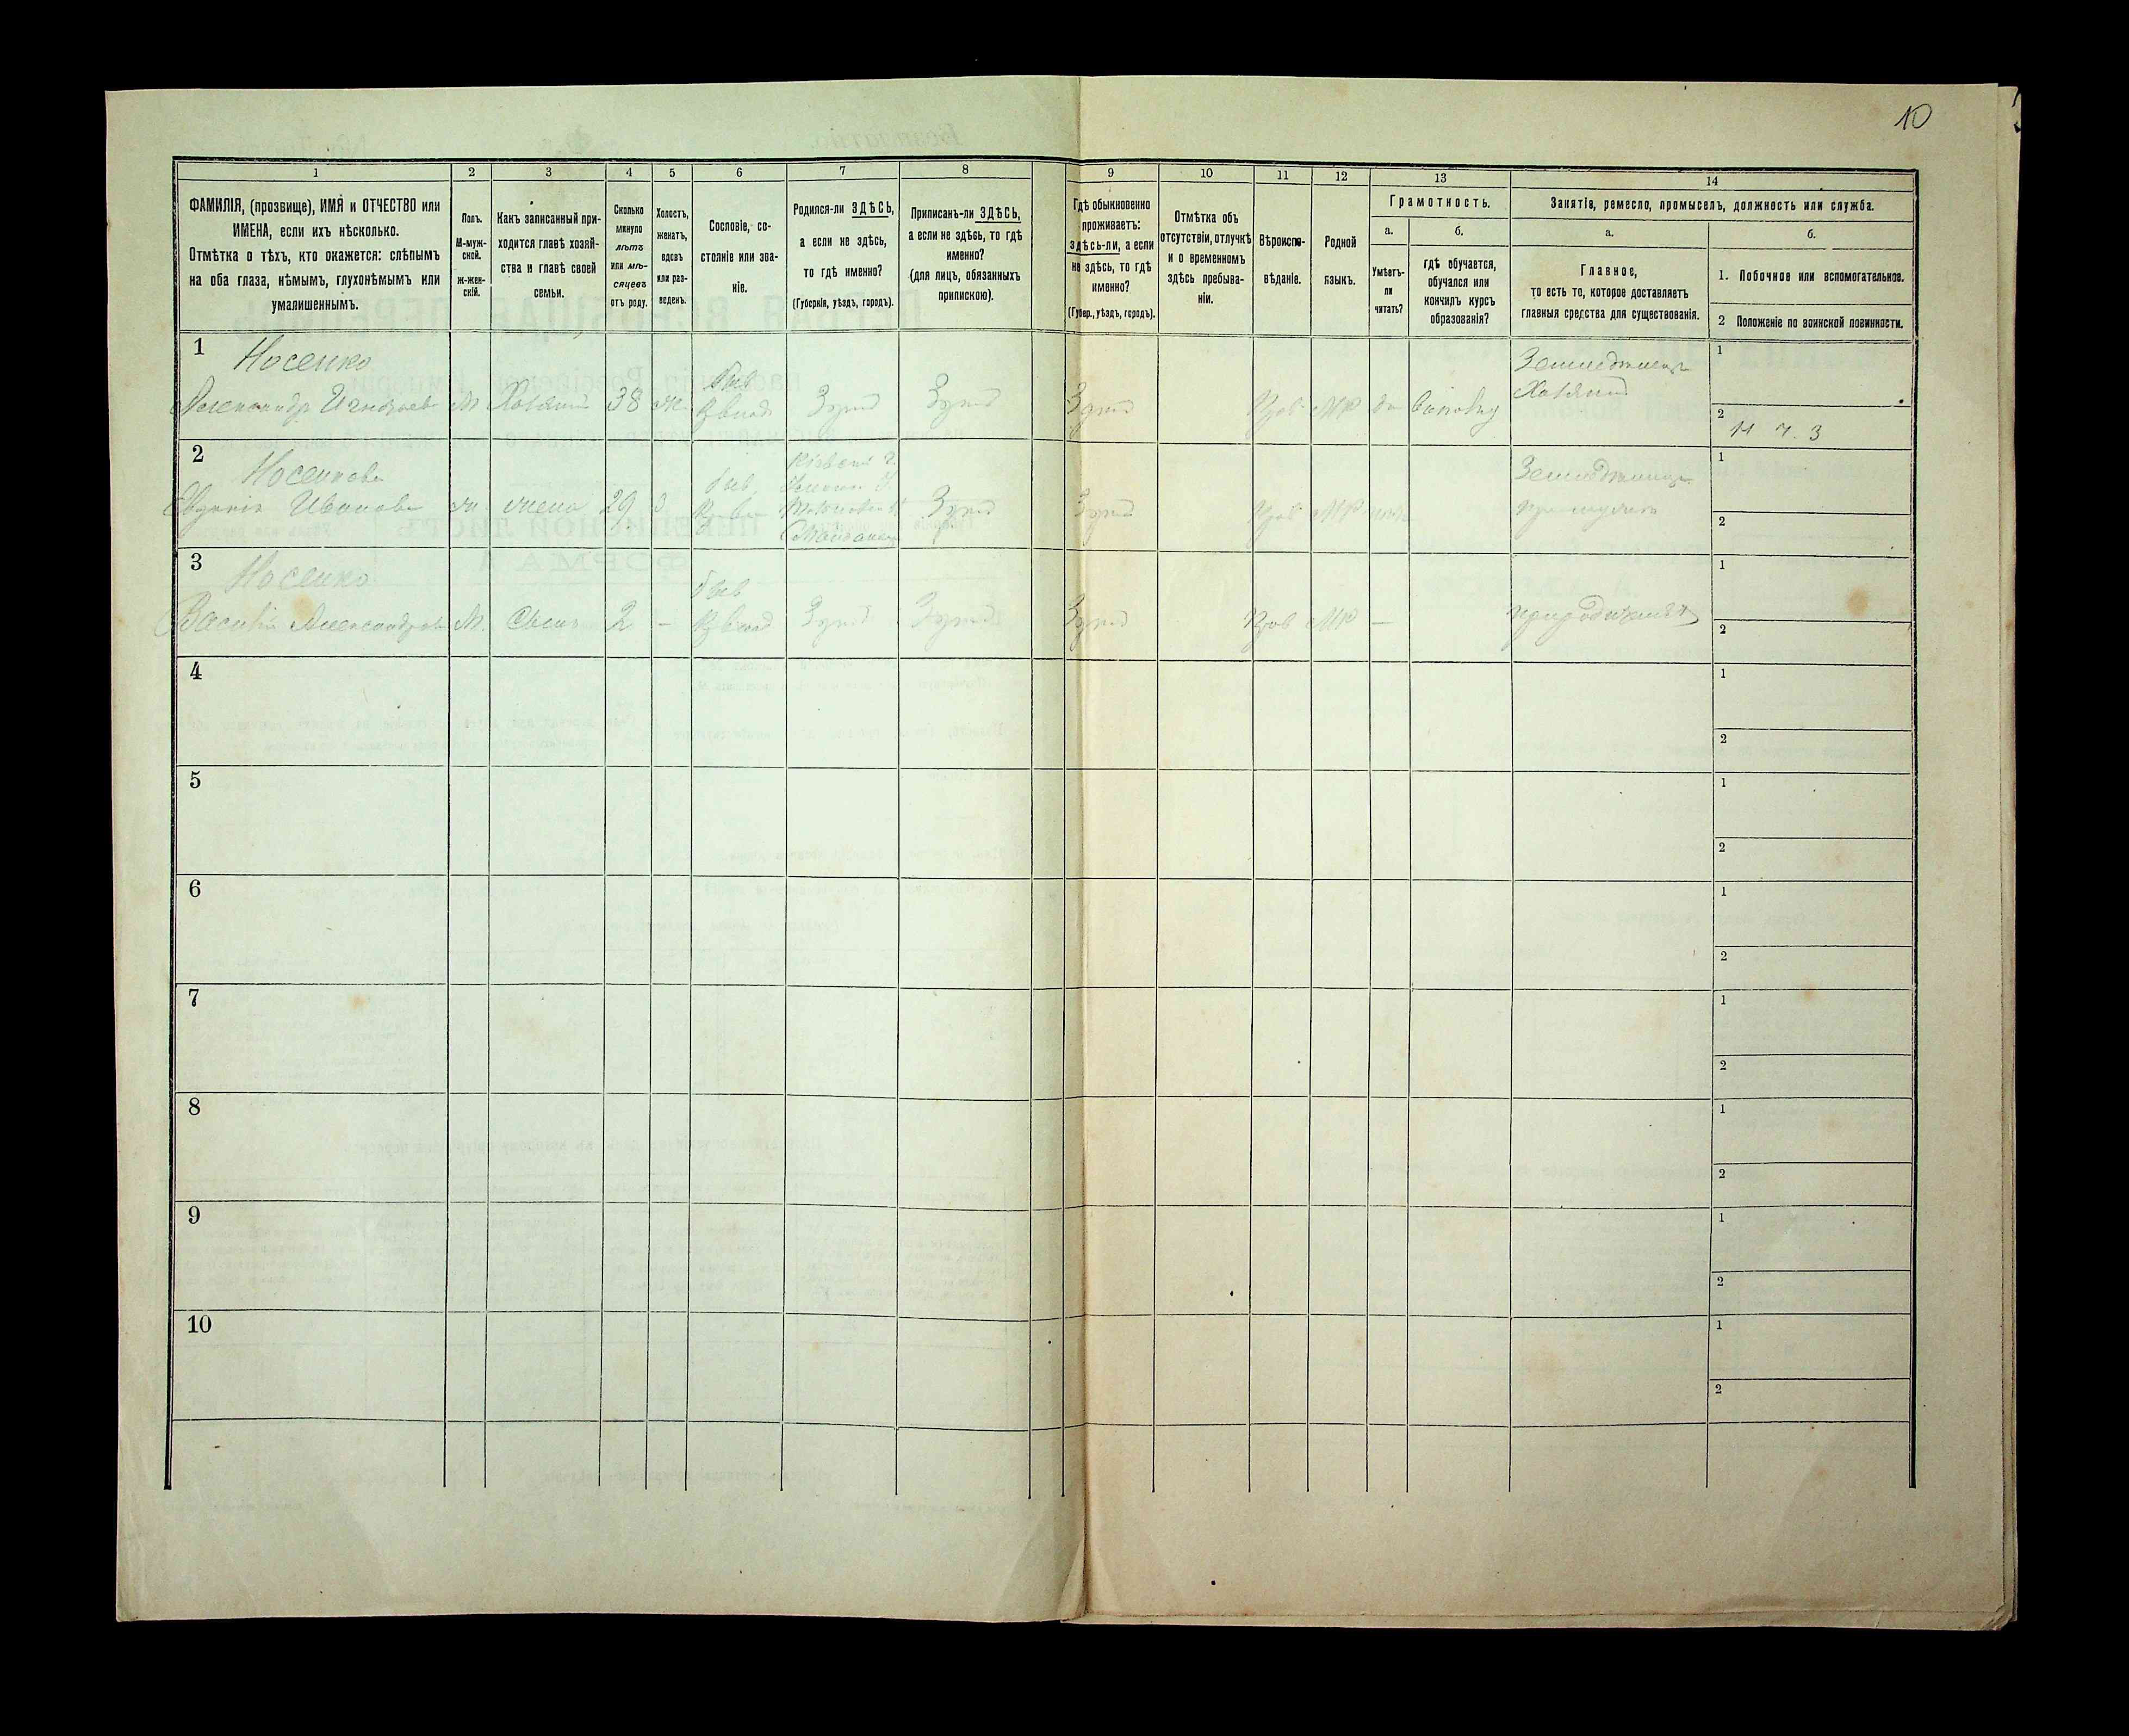 10
1
2
3
4
5
6
7
8
9
10
11
12
13
14
ФАМИЛІЯ, (прозвище), ИМЯ и ОТЧЕСТВО или
ИМЕНА, если ихъ нѣсколько.
Отмѣтка о тѣхъ, кто окажется: слѣпымъ
на оба глаза, нѣмымъ, глухонѣмымъ или
умалишеннымъ.
Полъ.
М-муж-
ской.
ж-жен-
скій.
Какъ записанный при-
ходится главѣ хозяй-
ства и главѣ своей
семьи.
Сколько
минуло
лѣтъ
или мѣ-
сяцевъ
отъ роду.
Холостъ,
женатъ,
вдовъ
или раз-
веденъ.
Сословіе, со-
стояніе или зва-
ніе.
Родился-ли ЗДѢСЬ,
а если не здѣсь,
то гдѣ именно?
(Губернія, уѣздъ, городъ).
Приписанъ-ли ЗДѢСЬ,
а если не здѣсь, то гдѣ
именно?
(для лицъ, обязанныхъ
припискою).
Гдѣ обыкновенно
проживаетъ:
здѣсь-ли, а если
не здѣсь, то гдѣ
именно?
(Губер., уѣздъ, городъ).
Отмѣтка объ
отсутствіи, отлучкѣ
и о временномъ
здѣсь пребыва-
ніи.
Вѣроиспо-
вѣданіе.
Родной
языкъ.
Грамотность.
а.
Умѣетъ-
ли
читать?
б.
гдѣ обучается,
обучался или
кончилъ курсъ
образованія?
Занятіе, ремесло, промыселъ, должность или служба.
а.
Главное,
то есть то, которое доставляетъ
главныя средства для существованія.
б.
1. Побочное или вспомогательное.
2 Положеніе по воинской повинности.
1
Носенко
Александр М Хозяин 38 ж.
быв
Здесь Здесь Здесь Прав МР да
Земледелец
Хозяин
1
2
2
Носенкова
Евдокия Иванова ж. жена 29 З
быв
Здесь Здесь Прав МР
1
2
3
Носенко
Василий Александров М. Сын 2 –
быв
Здесь Здесь Здесь Прав МР –
при родителях
1
2
4
1
2
5
1
2
6
1
2
7
1
2
8
1
2
9
1
2
10
1
2